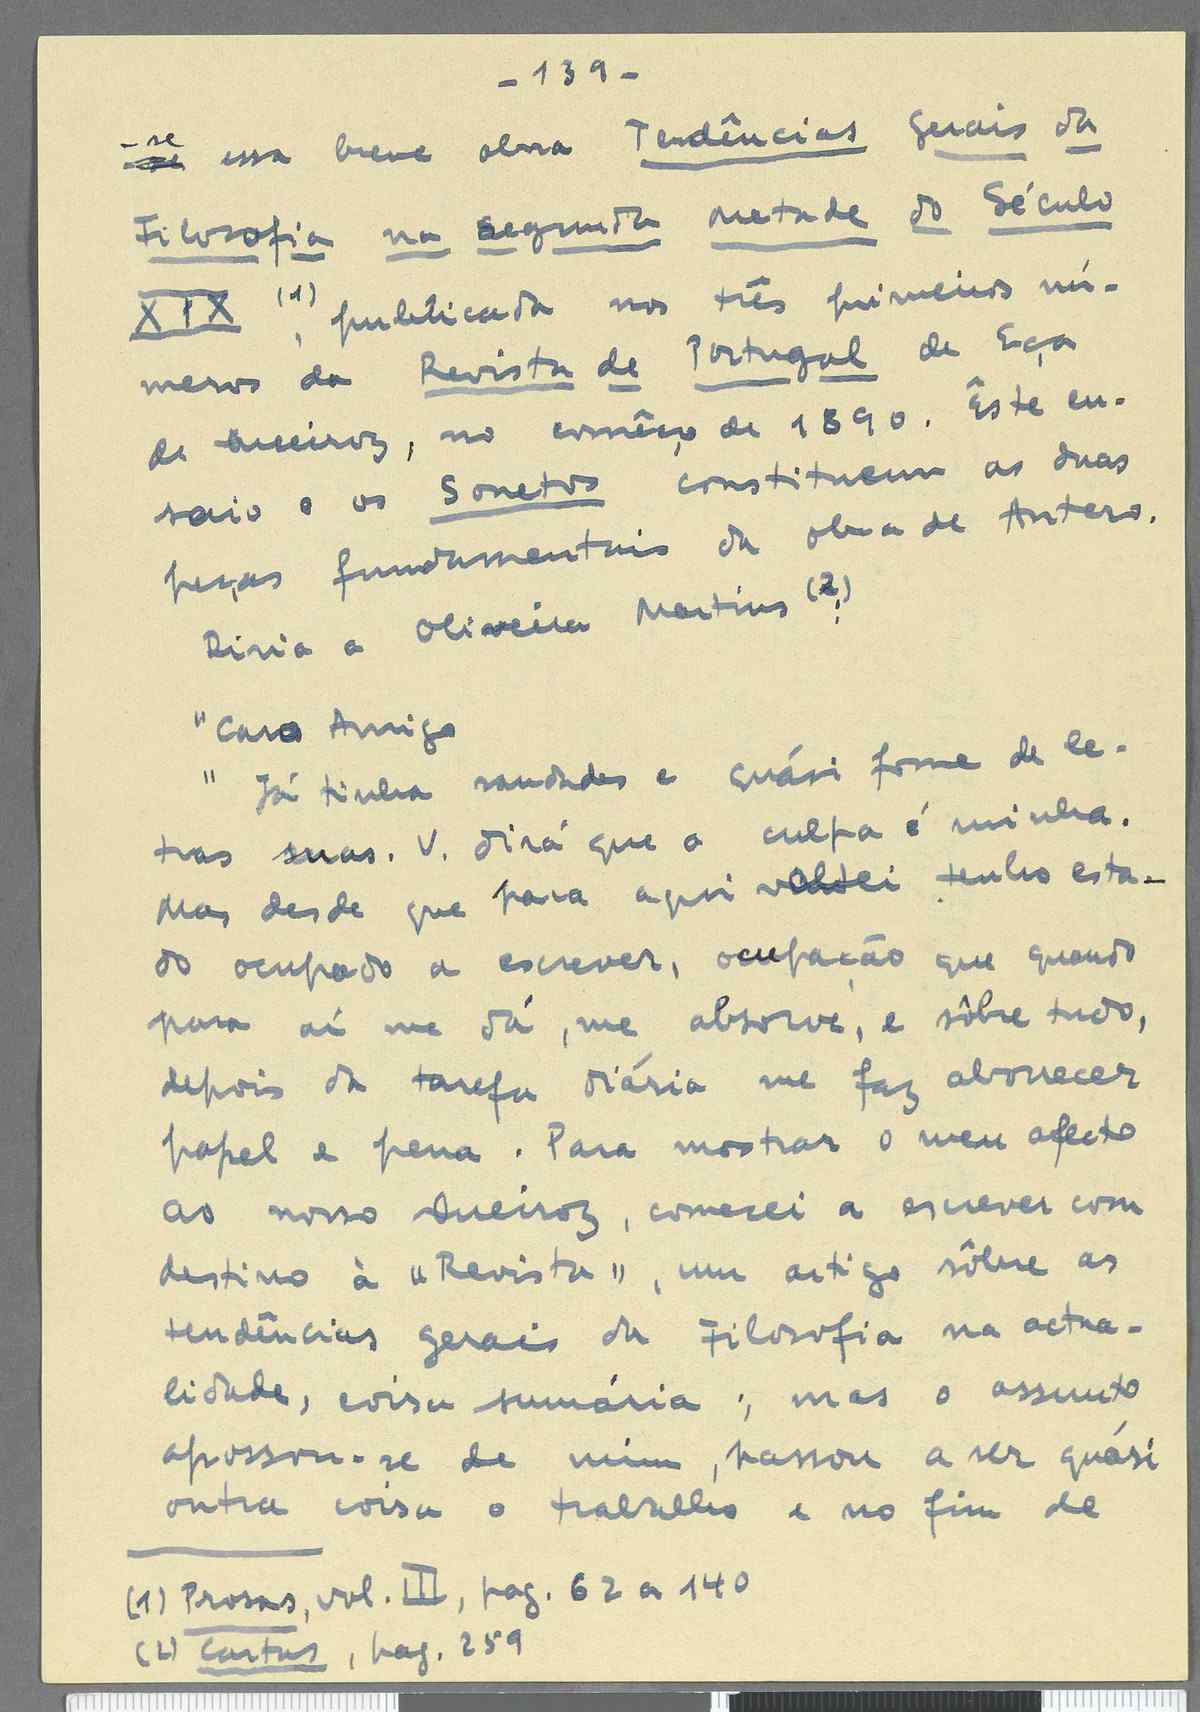 - 139 -
-se essa breve obra Tendências Gerais da
Filosofia na segunda metade do Século
XIX (1), publicada nos três primeiros nú-
meros da Revista de Portugal de Eça
de Queiroz, no comêço de 1890. Êste en-
saio e os Sonetos constituem as duas
peças fundamentais da obra de Antero.
Diria a Oliveira Martins (2):
"Caro Amigo
" Já tinha saudades e quási fome de le-
tras suas. V. dirá que a culpa é minha.
Mas desde que para aqui voltei tenho esta-
do ocupado a escrever, ocupação que quando
para aí me dá, me absorve, e sôbre tudo,
depois da tarefa diária me faz aborrecer
papel e pena. Para mostrar o meu afecto
ao nosso Queiroz, comecei a escrever com
destino à "Revista", um artigo sôbre as
tendências gerais da Filosofia na actua-
lidade, coisa sumária; mas o assunto
apossou-se de mim, passou a ser quási
outra coisa o trabalho e no fim de
(1) Prosas, vol. III, pag. 62 a 140
(2) Cartas, pag. 259